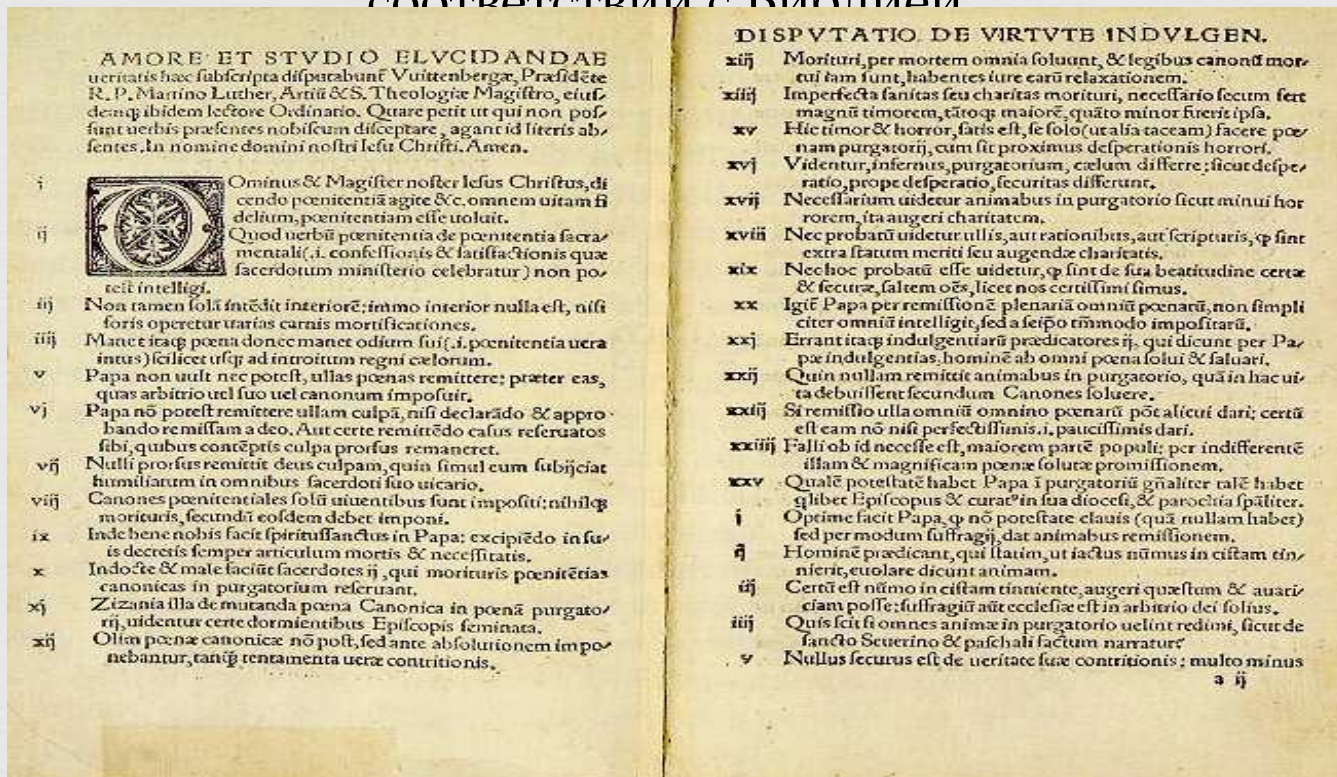 соответствии с Библией
AMORE ET STVDIO ELVCIDANDAE
ueritatis hæc ſubſcripta diſputabunt Vuittenbergæ, Præſidēte
R.P. Martino Luther, Artiū & S. Theologiæ Magiſtro, eiuſ-
demqꝫ ibidem lectore Ordinario. Quare petit ut qui non poſ-
ſunt uerbis præſentes nobiſcum diſceptare, agant id literis ab-
ſentes. In nomine domini noſtri Ieſu Chriſti. Amen.
i DOminus & Magiſter noſter Ieſus Chriſtus, di
cendo pœnitentiā agite &c. omnem uitam fi
delium, pœnitentiam eſſe uoluit.
ij Quod uerbū pœnitentia de pœnitentia ſacra-
mentali (.i. confeſſionis & ſatiſfactionis quæ
ſacerdotum miniſterio celebratur) non po-
teſt intelligi.
iij Non tamen ſolā intēdit interiorē: immo interior nulla eſt, niſi
foris operetur uarias carnis mortificationes.
iiij Manet itaqꝫ pœna donec manet odium ſui (.i. pœnitentia uera
intus) ſcilicet uſqꝫ ad introitum regni cælorum.
v Papa non uult nec poteſt, ullas pœnas remittere: præter eas,
quas arbitrio uel ſuo uel canonum impoſuit.
vj Papa nō poteſt remittere ullam culpā, niſi declarādo & appro
bando remiſſam a deo. Aut certe remittēdo caſus reſeruatos
ſibi, quibus contēptis culpa prorſus remaneret.
vij Nulli prorſus remittit deus culpam, quin ſimul eum ſubijciat
humiliatum in omnibus ſacerdoti ſuo uicario.
viij Canones pœnitentiales ſolū uiuentibus ſunt impoſiti: nihilqꝫ
morituris, ſecundū eoſdem debet imponi.
ix Inde bene nobis facit ſpirituſſanctus in Papa: excipiēdo in ſu-
is decretis ſemper articulum mortis & neceſſitatis.
x Indocte & male faciūt ſacerdotes ij, qui morituris pœnitētias
canonicas in purgatorium reſeruant.
xj Zizania illa de mutanda pœna Canonica in pœnā purgato-
rij, uidentur certe dormientibus Epiſcopis ſeminata.
xij Olim pœnæ canonicæ nō poſt, ſed ante abſolutionem impo-
nebantur, tanqꝫ tentamenta ueræ contritionis.
DISPVTATIO DE VIRTVTE INDVLGEN.
xiij Morituri, per mortem omnia ſoluunt, & legibus canonū mor-
tui iam ſunt, habentes iure earū relaxationem.
xiiij Imperfecta ſanitas ſeu charitas morituri, neceſſario ſecum fert
magnū timorem, tātoqꝫ maiorē, quāto minor fuerit ipſa.
xv Hic timor & horror, ſatis eſt, ſe ſolo (ut alia taceam) facere pœ-
nam purgatorij, cum ſit proximus deſperationis horrori.
xvj Videntur, infernus, purgatorium, cælum differre: ſicut deſpe-
ratio, prope deſperatio, ſecuritas differunt.
xvij Neceſſarium uidetur animabus in purgatorio ſicut minui hor
rorem, ita augeri charitatem.
xviij Nec probatū uidetur ullis, aut rationibus, aut ſcripturis, ꝙ ſint
extra ſtatum meriti ſeu augendæ charitatis.
xix Nec hoc probatū eſſe uidetur, ꝙ ſint de ſua beatitudine certæ
& ſecuræ, ſaltem oēs, licet nos certiſſimi ſimus.
xx Igit̄ Papa per remiſſionē plenariā omniū pœnarū, non ſimpli
citer omniū intelligit, ſed a ſeipſo tm̄modo impoſitarū.
xxj Errant itaqꝫ indulgentiarū prædicatores ij, qui dicunt per Pa-
pæ indulgentias, hominē ab omni pœna ſolui & ſaluari.
xxij Quin nullam remittit animabus in purgatorio, quā in hac ui-
ta debuiſſent ſecundum Canones ſoluere.
xxiij Si remiſſio ulla omniū omnino pœnarū pōt alicui dari: certū
eſt eam nō niſi perfectiſſimis .i. pauciſſimis dari.
xxiiij Falli ob id neceſſe eſt, maiorem partē populi: per indifferentē
illam & magnificam pœnæ ſolutæ promiſſionem.
xxv Qualē poteſtatē habet Papa ī purgatoriū gn̄aliter talē habet
qlibet Epiſcopus & curatꝰ in ſua dioceſi, & parochia ſpāliter.
i Optime facit Papa, ꝙ nō poteſtate clauis (quā nullam habet)
ſed per modum ſuffragij, dat animabus remiſſionem.
ij Hominē prædicant, qui ſtatim, ut iactus nūmus in ciſtam tin-
nierit, euolare dicunt animam.
iij Certū eſt nūmo in ciſtam tinniente, augeri quæſtum & auari-
ciam poſſe: ſuffragiū aūt eccleſiæ eſt in arbitrio dei ſolius.
iiij Quis ſcit ſi omnes animæ in purgatorio uelint redimi, ſicut de
ſancto Seuerino & paſchali factum narratur?
v Nullus ſecurus eſt de ueritate ſuæ contritionis: multo minus
a ij